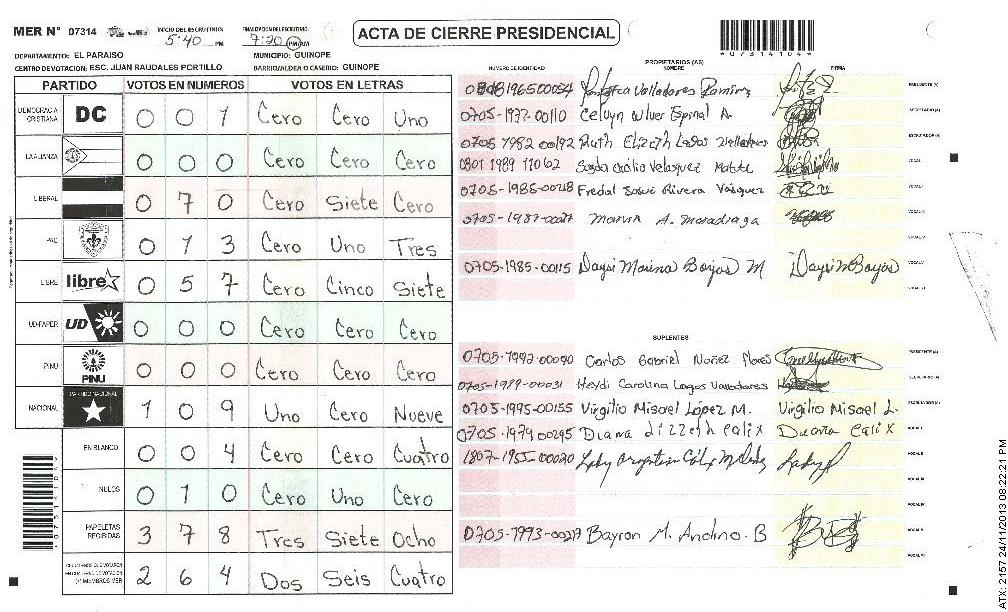 MER N° 07314
INICIO DEL ESCRUTINIO: 5:40 PM
FINALIZACION DEL ESCRUTINIO: 7:20 PM/AM
ACTA DE CIERRE PRESIDENCIAL
07314104
DEPARTAMENTO: EL PARAISO
MUNICIPIO: GUINOPE
CENTRO DE VOTACION: ESC. JUAN RAUDALES PORTILLO
BARRIO/ALDEA O CASERIO: GUINOPE
PARTIDO VOTOS EN NUMEROS VOTOS EN LETRAS
DEMOCRACIA CRISTIANA DC 0 0 1 Cero Cero Uno
LA ALIANZA 0 0 0 Cero Cero Cero
LIBERAL 0 7 0 Cero Siete Cero
PAC 0 1 3 Cero Uno Tres
LIBRE libre 0 5 7 Cero Cinco Siete
UD-FAPER UD 0 0 0 Cero Cero Cero
PINU PINU 0 0 0 Cero Cero Cero
NACIONAL PARTIDO NACIONAL 1 0 9 Uno Cero Nueve
EN BLANCO 0 0 4 Cero Cero Cuatro
NULOS 0 1 0 Cero Uno Cero
PAPELETAS RECIBIDAS 3 7 8 Tres Siete Ocho
2 6 4 Dos Seis Cuatro
PROPIETARIOS (AS)
NUMERO DE IDENTIDAD NOMBRE FIRMA
Valladares Ramirez PRESIDENTE (A)
0705-1977-00110 Celvyn Wiluer Espinal A. SECRETARIO (A)
0705 1982 00192 Ruth Elizeth ESCRUTADOR (A)
0801 1989 11062 Velasquez VOCAL I
0705-1985-00218 Fredal Josue Rivera Vasquez VOCAL II
0705-1987-00217 Marvin A. Moradiaga VOCAL III
VOCAL IV
0705-1985-00115 Daysi Marina Borjas M Daysi M Borjas VOCAL V
VOCAL VI
SUPLENTES
0705-1992-00090 Carlos Gabriel Nuñez Flores PRESIDENTE (A)
0705-1989-00031 Heydi Carolina Lagos Valladares SECRETARIO (A)
0705-1995-00155 Virgilio Misael López M. Virgilio Misael L. ESCRUTADOR (A)
0705-1979 00295 Diana Lizzeth Calix Diana Calix VOCAL I
1807-1955-00020 VOCAL II
VOCAL III
VOCAL IV
0705-1993-00217 Bayron M. Andino B VOCAL V
VOCAL VI
ATX: 2157 24/11/2013 08:22:21 PM